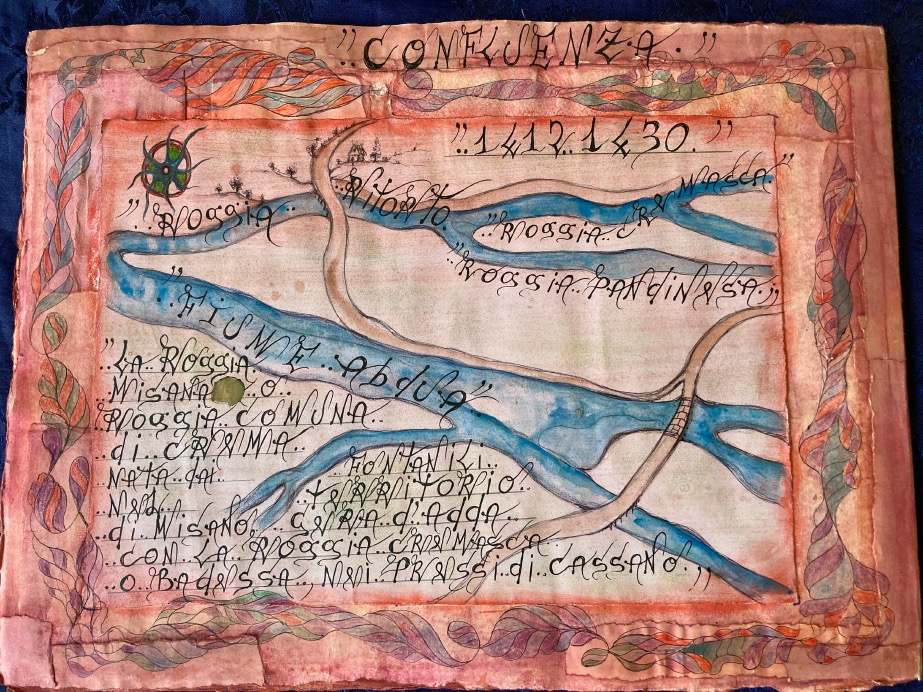 "CONFLUENZA."
"1412.1430."
"ROGGIA..
RITORTO.
"ROGGIA..CREMASCA"
"ROGGIA..PANDINESA.."
"FIUME..Abdua"
"LA..ROGGIA..
MISANA..O..
ROGGIA..COMUNA..
di..CREMA..
NATA..dai..FONTANILI..
NEL..TERRITORIO..
di..MISANO..GERA..d'AddA..
CON..LA..ROGGIA..CREMASCA..
O..BADESSA..NEI..PRESSI..di..CASSANO.."